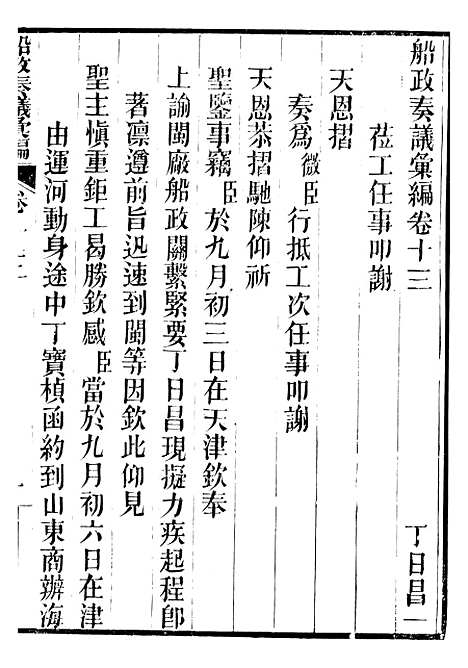 船政奏議彙編卷十三
丁日昌一
莅工任事叩謝
天恩摺
奏爲微臣行抵工次任事叩謝
天恩恭摺馳陳仰祈
聖鑒事竊臣於九月初三日在天津欽奉
上諭閩廠船政關繫緊要丁日昌現擬力疾起程卽
著凛遵前旨迅速到閩等因欽此仰見
聖主愼重鉅工曷勝欽感臣當於九月初六日在津
由運河動身途中丁寶楨函約到山東商辦海
船政奏議彙編
卷十三